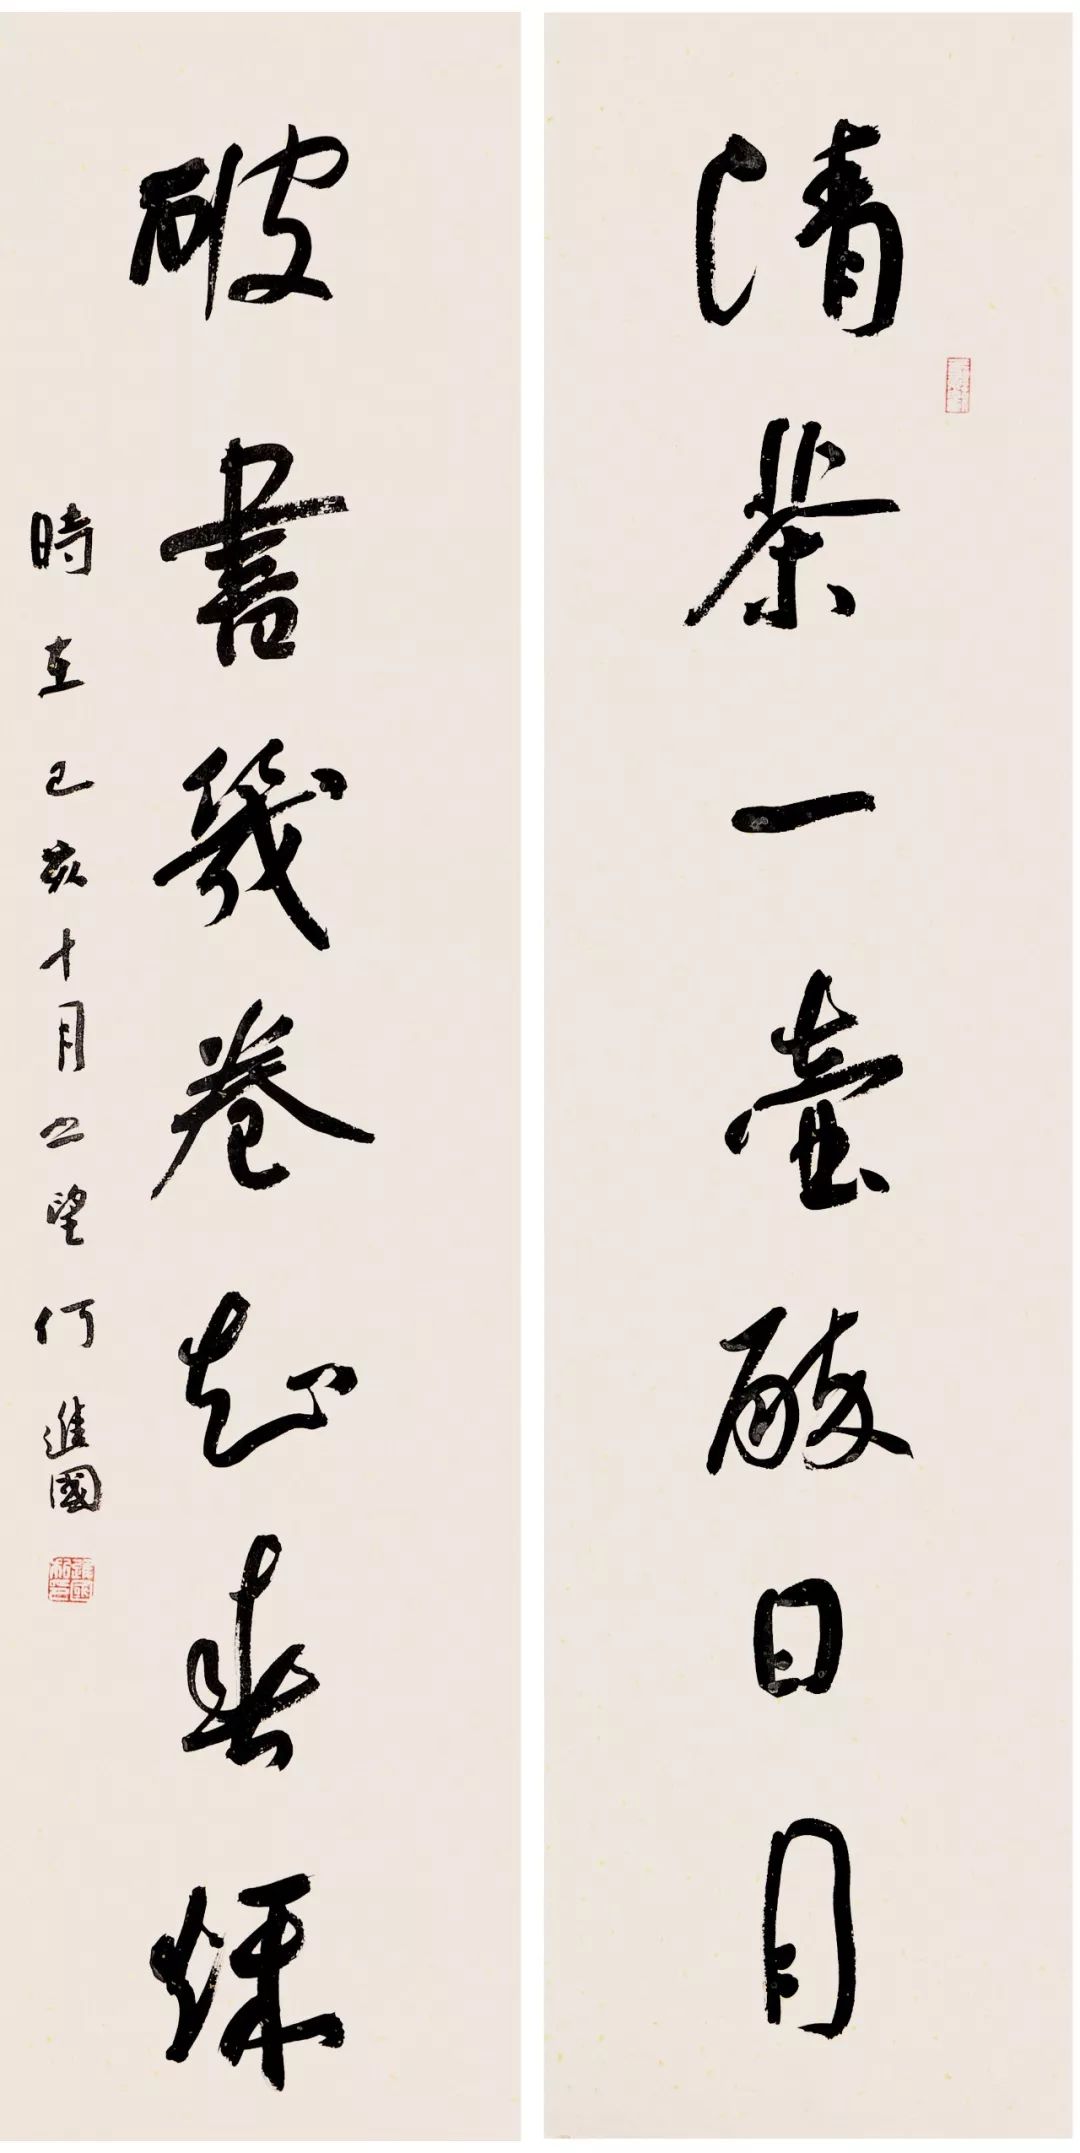 清茶一壺醉日月
破書幾卷起春秌
時在己亥十月之望何進國